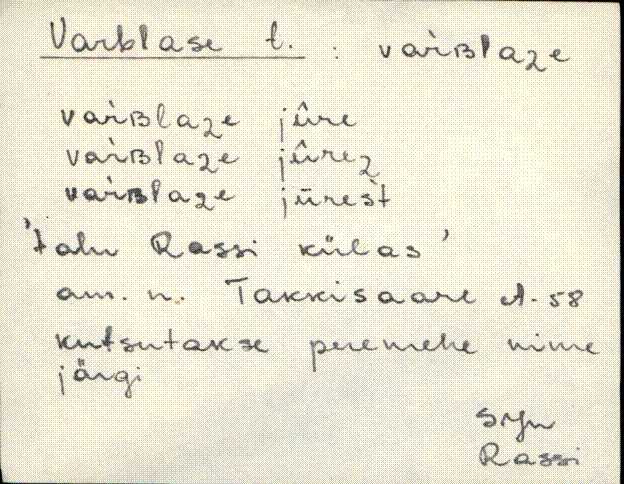 Varblase t. : vaŕʙlaʒe
vaŕʙlaʒe jûre
vaŕʙlaʒe jûreʒ
vaŕʙlaʒe jüres̀t
'talu Rassi külas'
am. n. Takkisaare A-58
kutsutakse peremehe nime
järgi
SJn
Rassi